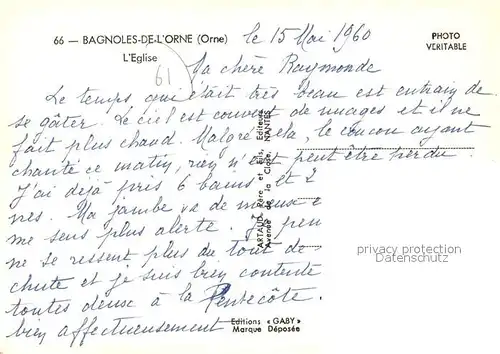 66 — BAGNOLES-DE-L'ORNE (Orne)
L'Eglise
le 15 Mai 1960
PHOTO
VERITABLE
61
Ma chère Raymonde
Le temps qui était très beau est entrain de
se gâter. Le ciel est couvert de nuages et il ne
fait plus chaud. Malgré cela, le coucou ayant
chanté ce matin, rien n'est peut être perdu.
J'ai déjà pris 6 bains et 2
Ma jambe va de mieux
me sens plus alerte.
ne se ressent plus du tout de
chute et je suis bien contente
toutes deux à la Pentecôte.
bien affectueusement
ARTAUD, Père et Fils, Editeurs
Avenue de la Close, NANTES
Editions « GABY »
Marque Déposée
privacy protection
Datenschutz